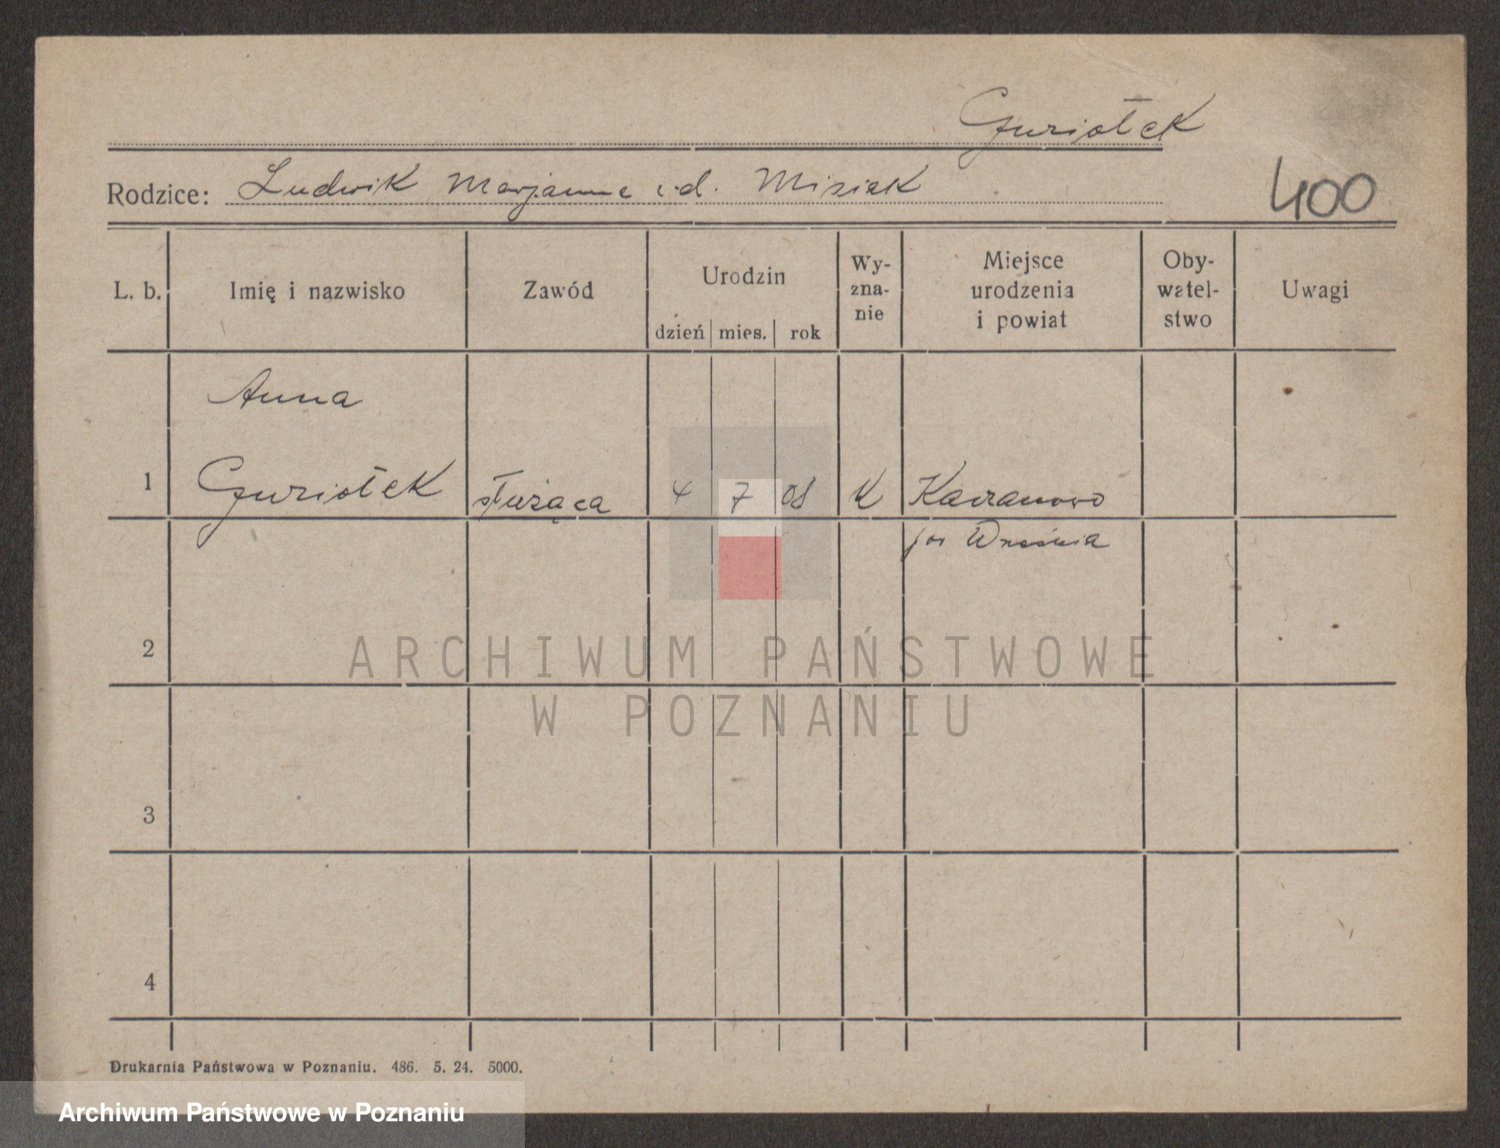 Guziołek
Rodzice: Ludwik Marjanna z d. Misiak
400
L. b. Imię i nazwisko Zawód Urodzin Wy-zna-nie Miejsce urodzenia i powiat Oby-watel-stwo Uwagi
dzień mies. rok
Anna
1 Guziołek służąca 4 7 08 K
Września
2
ARCHIWUM PAŃSTWOWE
W POZNANIU
3
4
Drukarnia Państwowa w Poznaniu. 486. 5. 24. 5000.
Archiwum Państwowe w Poznaniu